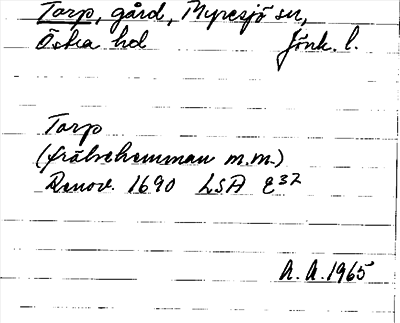 Torp, gård, Myresjö sn,
Östra hd Jönk. l.
Torp
(frälsehemman m.m.)
Renov. 1690 LSA E37
A. A. 1965